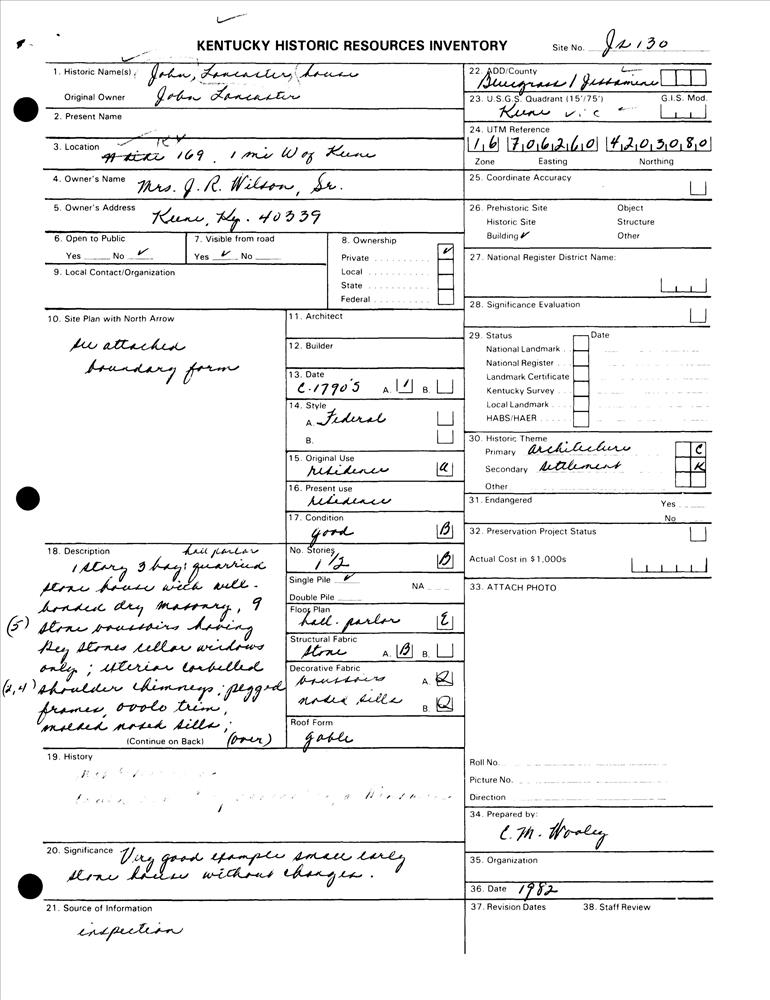 KENTUCKY HISTORIC RESOURCES INVENTORY
Site No. Js 130
1. Historic Name(s) John, Lancaster, house
Original Owner John Lancaster
2. Present Name
3. Location KY 169, 1 mi W of Keene
4. Owner's Name Mrs. J. R. Wilson, Sr.
5. Owner's Address Keene, Ky. 40339
6. Open to Public
Yes No ✓
7. Visible from road
Yes ✓ No
8. Ownership
Private ✓
Local
State
Federal
9. Local Contact/Organization
10. Site Plan with North Arrow
see attached
boundary form
11. Architect
12. Builder
13. Date
C. 1790's A. 1 B.
14. Style
A. Federal
B.
15. Original Use
residence a
16. Present use
residence
17. Condition
good B
18. Description hall parlor
1 story 3 bay; quarried
stone house with well-
bonded dry masonry, 9
(5) stone voussoirs having
key stones cellar windows
only; exterior corbelled
(2,4) shoulder chimneys; pegged
frames, ovolo trim,
molded nosed sills;
(Continue on Back) (over)
No. Stories
1 1/2 B
Single Pile ✓ NA
Double Pile
Floor Plan
hall-parlor E
Structural Fabric
stone A. B B.
Decorative Fabric
voussoirs A. Q
nosed sills B. Q
Roof Form
gable
19. History
20. Significance Very good example small early
stone house without changes.
21. Source of Information
inspection
22. ADD/County
Bluegrass / Jessamine
23. U.S.G.S. Quadrant (15'/75') G.I.S. Mod.
Keene
24. UTM Reference
16 706260 4203080
Zone Easting Northing
25. Coordinate Accuracy
26. Prehistoric Site Object
Historic Site Structure
Building ✓ Other
27. National Register District Name:
28. Significance Evaluation
29. Status Date
National Landmark
National Register
Landmark Certificate
Kentucky Survey
Local Landmark
HABS/HAER
30. Historic Theme
Primary architecture C
Secondary settlement K
Other
31. Endangered Yes
No
32. Preservation Project Status
Actual Cost in $1,000s
33. ATTACH PHOTO
Roll No.
Picture No.
Direction
34. Prepared by:
C. M. Wooley
35. Organization
36. Date 1982
37. Revision Dates 38. Staff Review